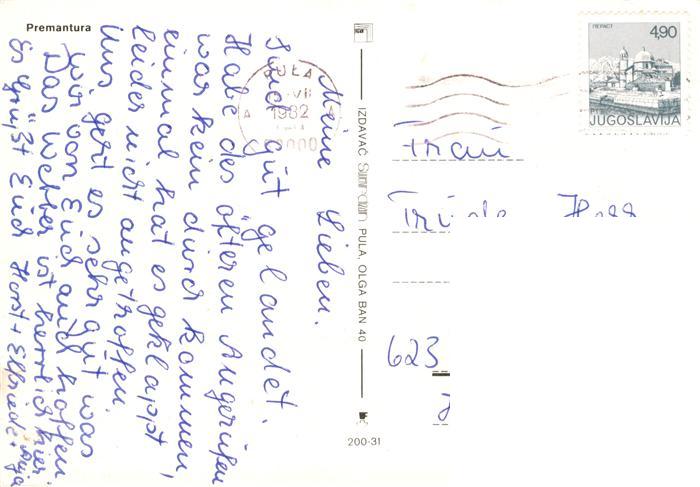 Premantura
Meine Lieben.
Sind gut gelandet.
Habe des öfteren Angerufen
war kein durch kommen,
einmal hat es geklappt
leider nicht angetroffen.
Uns geht es sehr gut was
wir von Euch auch hoffen.
Das Wetter ist herrlich hier.
Es grüßt Euch Horst + Elfriede + Anja
PULA
VII
1982
IZDAVAČ PULA, OLGA BAN 40
200-31
ПЕРАСТ
4,90
JUGOSLAVIJA
Frau
623